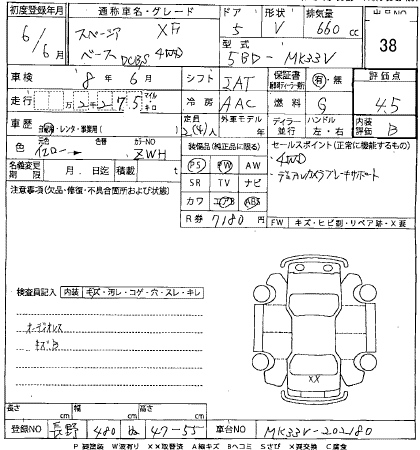 初度登録年月 通称車名・グレード ドア 形状 排気量 出品NO
6/6月 スペーシア XF 5 V 660cc 38
ベース DCBS 4WD 型式 5BD-MK33V
車検 8年6月 シフト IAT 保証書 有・無 評価点
走行 万 2千 2 7.5 マイル・キロ 冷房 AAC 燃料 G 4.5
車歴 自家用・レンタ・事業用( ) 定員 2(4)人 外車モデル ディーラー・並行 ハンドル 左・右 内装評価 B
色 イエロー 元色 色替 カラーNO ZWH 装備品(純正品に限る) セールスポイント(正常に機能するもの)
名義変更期限 月 日迄 積載 t PS PW AW 4WD
注意事項(欠品・修復・不具合箇所および状態) SR TV ナビ デュアルカメラブレーキサポート
カワ エアB ABS
R券 7180円 FW キズ・ヒビ割・リペア跡・X要
検査員記入 内装 キズ・汚レ・コゲ・穴・スレ・キレ
オーディオレス
キズ有
XX
長さ cm 幅 cm 高さ cm
登録NO 長野 480 47-55 車台NO MK33V-202180
P 要塗装 W波有り XX取替済 A線キズ Bヘコミ Sさび X要交換 C腐食